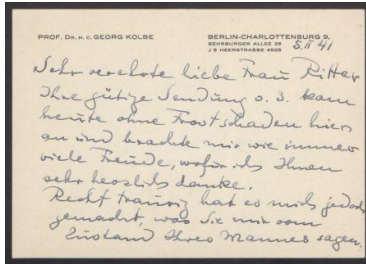 PROF. DR. H. C. GEORG KOLBE
BERLIN-CHARLOTTENBURG 9,
SENSBURGER ALLEE 25
J 9 HEERSTRASSE 4625
5. II 41
Sehr verehrte liebe Frau Ritter
Ihre gütige Sendung v. 3. kam
heute ohne Frostschaden hier
an und brachte mir wie immer
viele Freude, wofür ich Ihnen
sehr herzlich danke.
Recht traurig hat es mich jedoch
gemacht, was Sie mir vom
Zustand Ihres Mannes sagen.